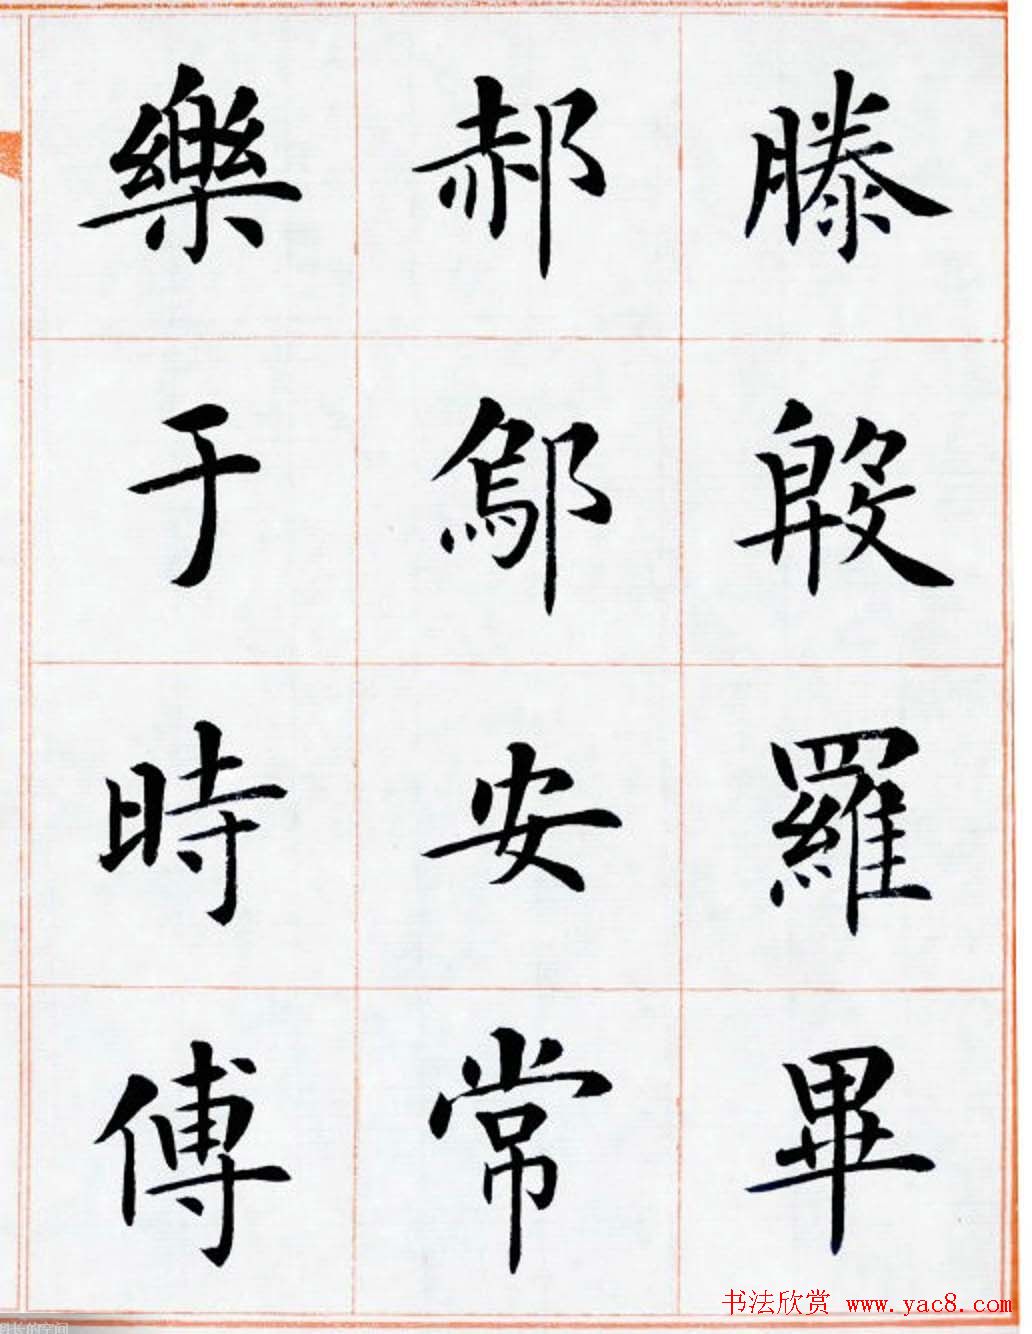 滕殷羅畢
郝鄔安常
樂于時傅
书法欣赏 www.yac8.com